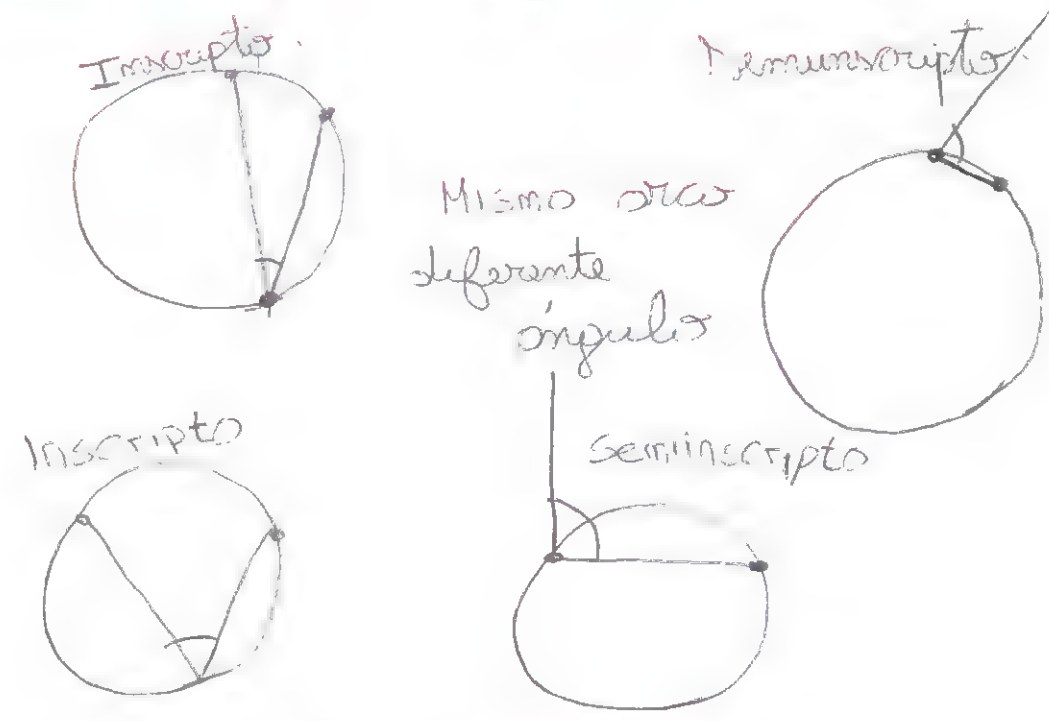 Inscripto.
Semiinscripto.
Mismo arco
diferente
ángulo
Inscripto
Semiinscripto